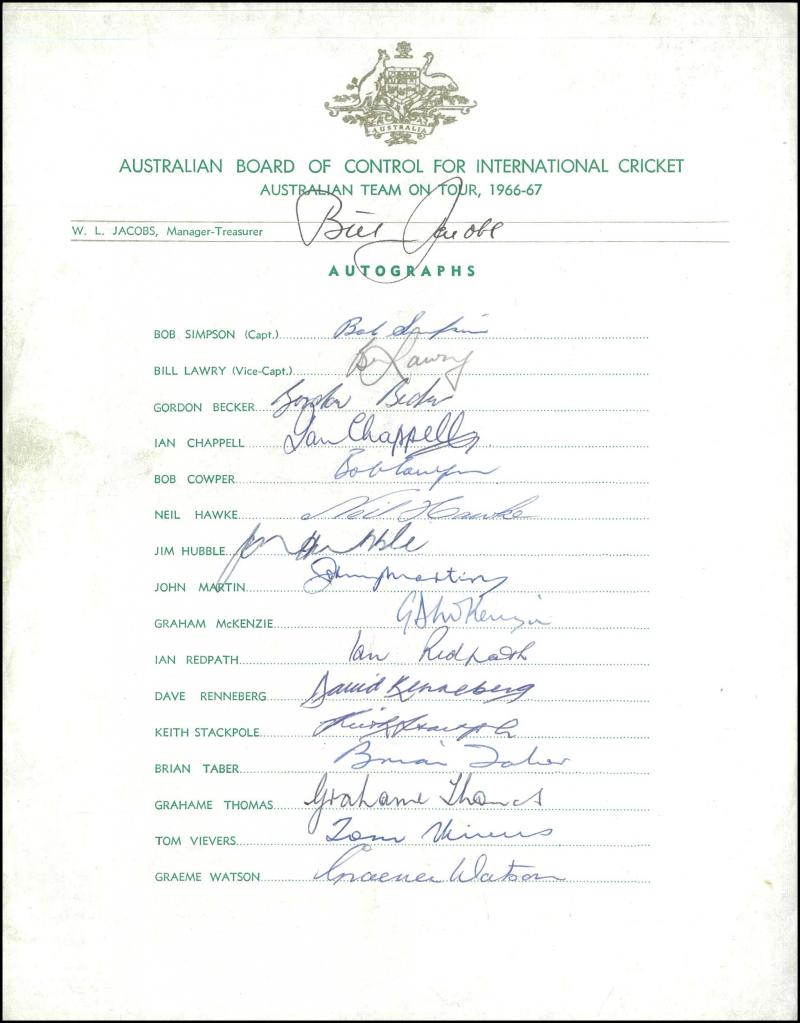 AUSTRALIA
AUSTRALIAN BOARD OF CONTROL FOR INTERNATIONAL CRICKET
AUSTRALIAN TEAM ON TOUR, 1966-67
W. L. JACOBS, Manager-Treasurer Bill Jacobs
AUTOGRAPHS
BOB SIMPSON (Capt.) Bob Simpson
BILL LAWRY (Vice-Capt.) Bill Lawry
GORDON BECKER Gordon Becker
IAN CHAPPELL Ian Chappell
BOB COWPER Bob Cowper
NEIL HAWKE Neil Hawke
JIM HUBBLE Jim Hubble
JOHN MARTIN Johnny Martin
GRAHAM McKENZIE G D McKenzie
IAN REDPATH Ian Redpath
DAVE RENNEBERG David Renneberg
KEITH STACKPOLE Keith Stackpole
BRIAN TABER Brian Taber
GRAHAME THOMAS Grahame Thomas
TOM VIEVERS Tom Veivers
GRAEME WATSON Graeme Watson